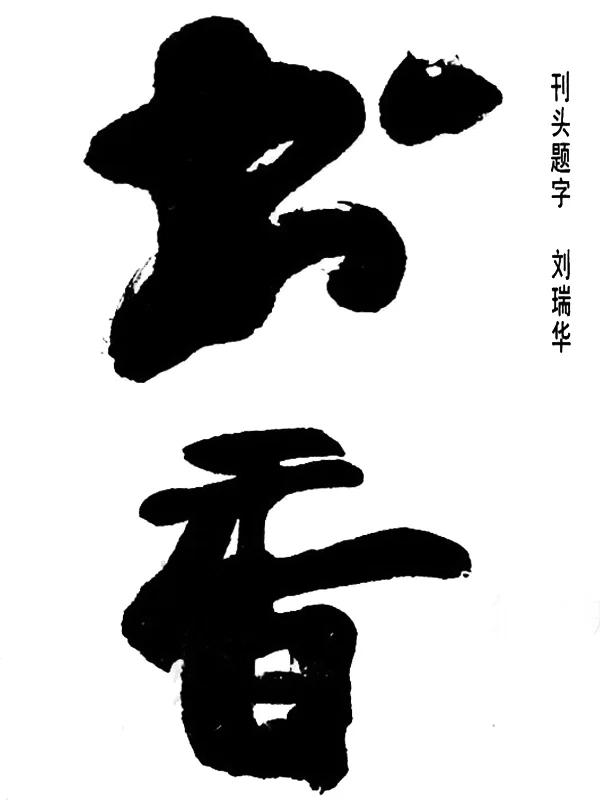 书香
刊头题字 刘瑞华